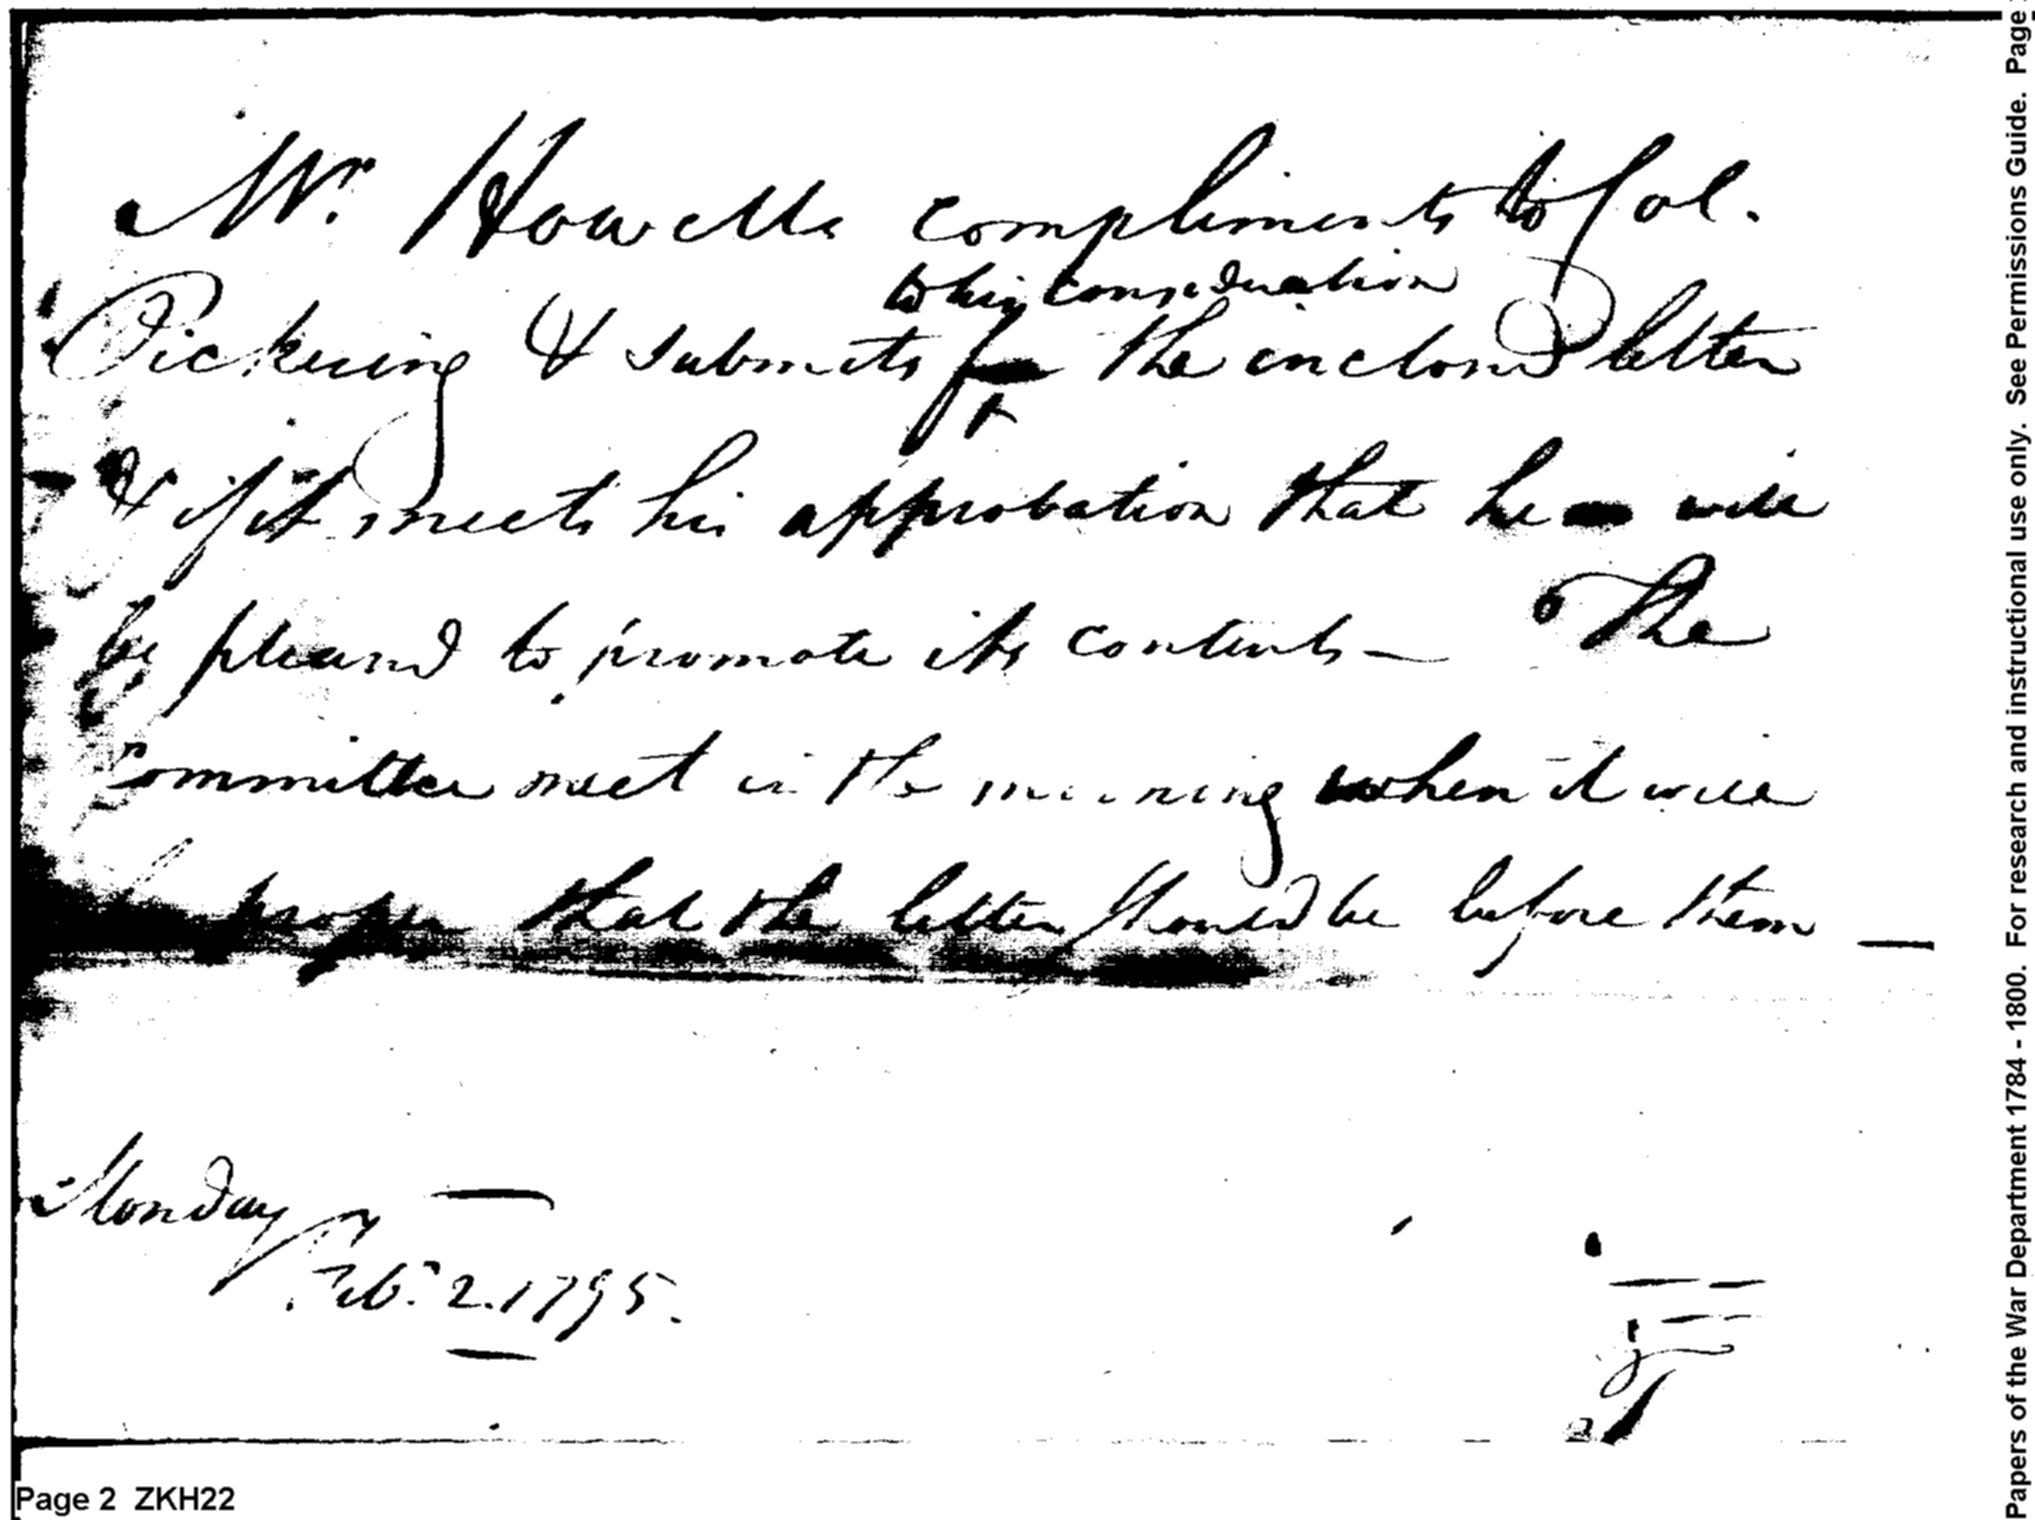 Mr. Howells compliments to Col.
to his consideration
Pickering & submits for the inclosed letter
& if it meets his approbation that he will
be pleased to promote its contents — The
Committee meet in the morning when it will
be proper that the letter should be before them —
Monday
Feby. 2. 1795.
Page 2 ZKH22
Papers of the War Department 1784 - 1800. For research and instructional use only. See Permissions Guide. Page